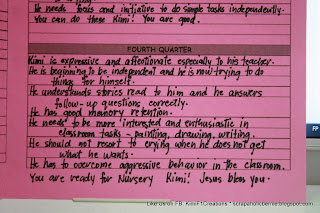 He needs focus and initiative to do simple tasks independently.
You can do these Kimi! You are good.
FOURTH QUARTER
Kimi is expressive and affectionate especially to his teacher.
He is beginning to be independent and he is now trying to do
things for himself.
He understands stories read to him and he answers
follow-up questions correctly.
He has good memory retention.
He needs to be more interested and enthusiastic in
classroom tasks - painting, drawing, writing.
He should not resort to crying when he does not get
what he wants.
He has to overcome aggressive behavior in the classroom.
You are ready for Nursery Kimi! Jesus bless you.
FP